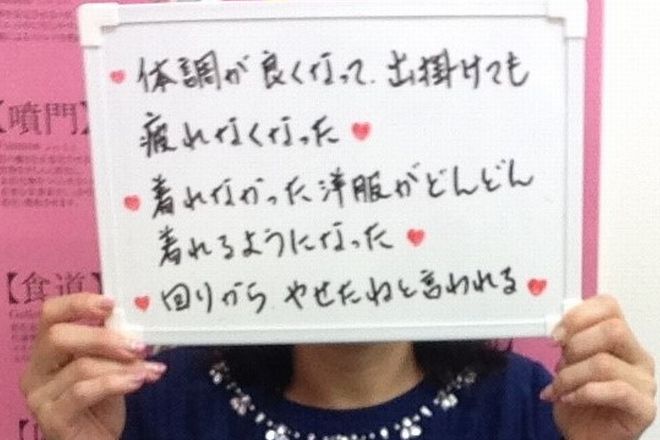 ♥体調が良くなって、出掛けても
疲れなくなった♥
♥着れなかった洋服がどんどん
着れるようになった♥
♥回りから、やせたねと言われる♥
【噴門】
【食道】